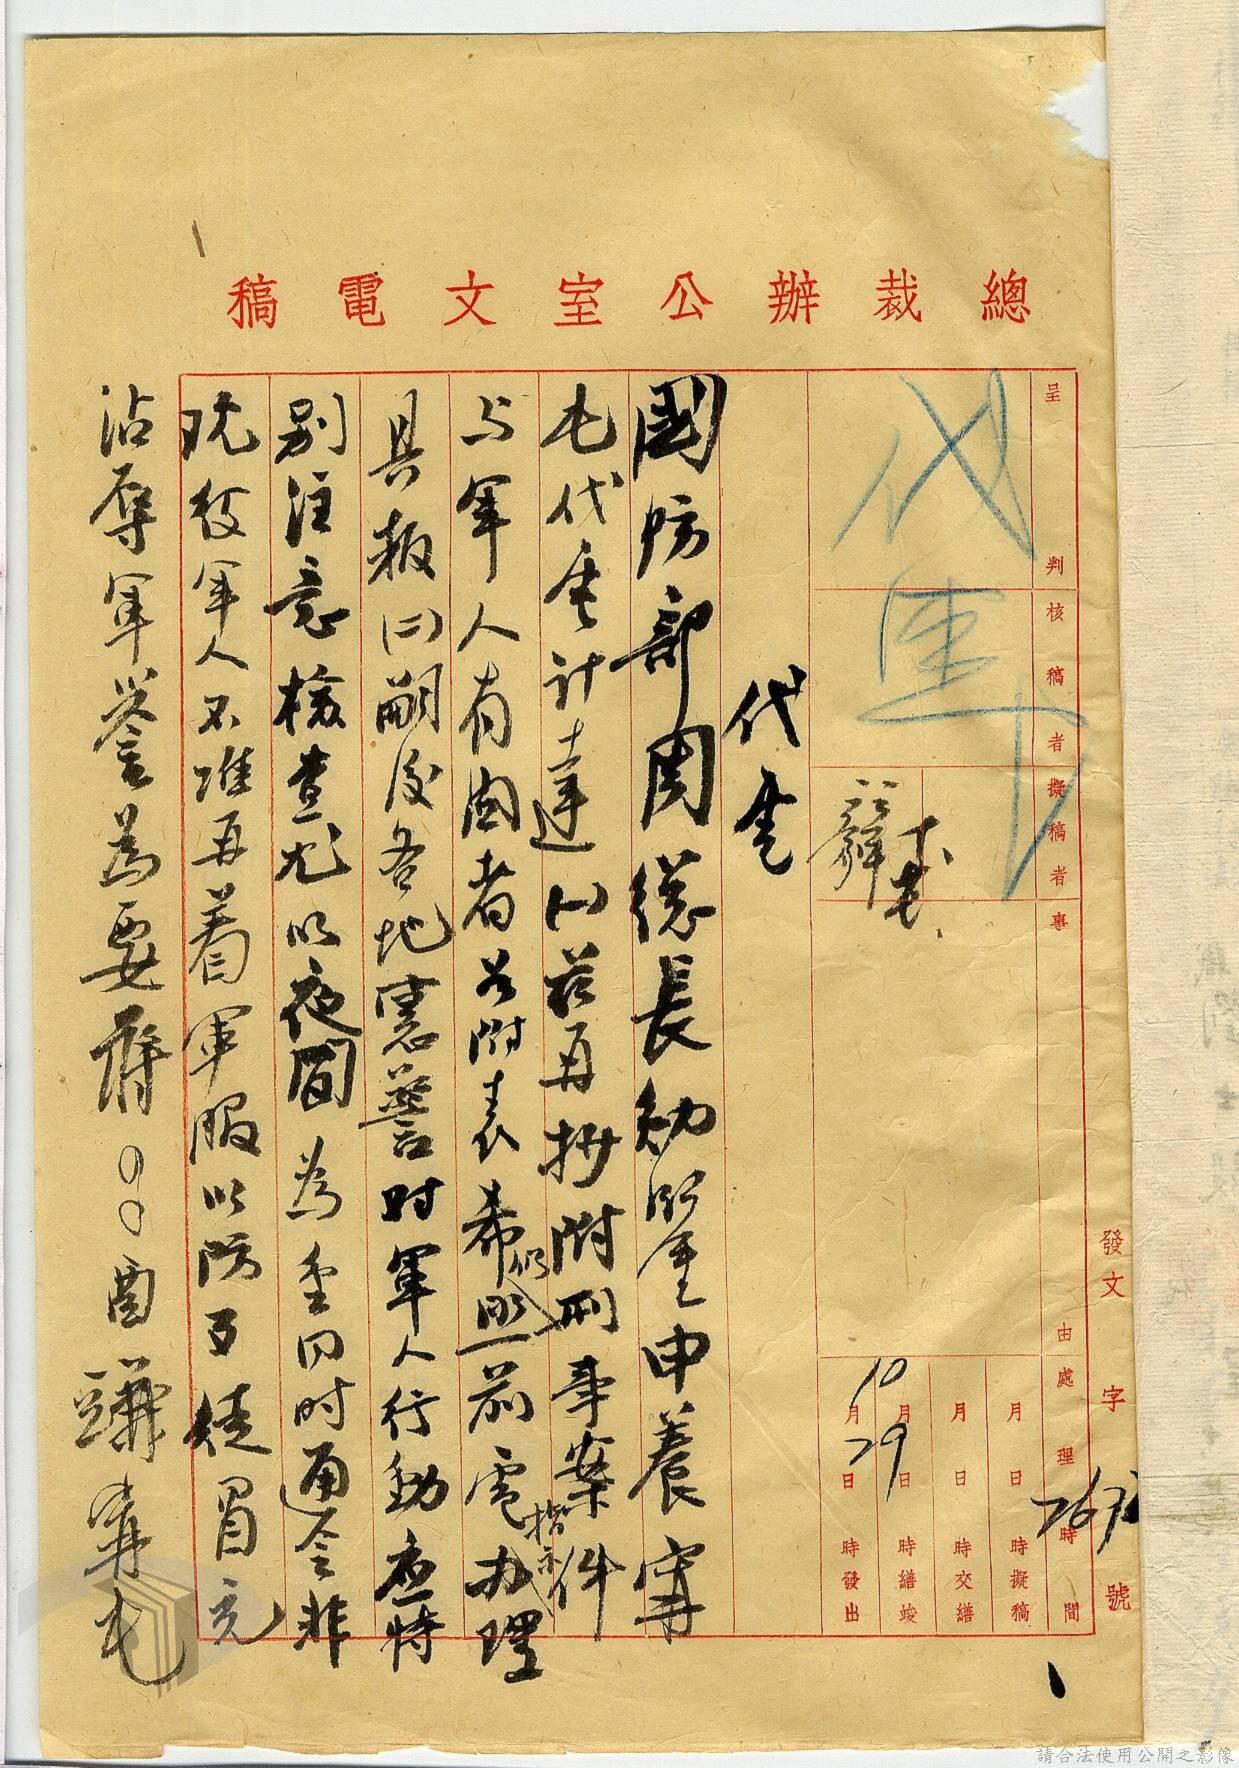 總裁辦公室文電稿
呈判
核稿者
擬稿者
事由
處理時間
月日時擬稿
月日時交繕
月日時繕竣
月日時發出
10 29
發文字號
代電
代電
國防部周總長勛鑒申養寧
宅代電計達(一)茲再抄附刑事案件
与軍人有關者名附表希仍照前電指示办理
具報(二)嗣後各地憲警对軍人行動應特
別注意檢查尤以夜間為重同時通令非
現役軍人不准再着軍服以防歹徒冒充
沾辱軍譽為要蔣○○酉
請合法使用公開之影像